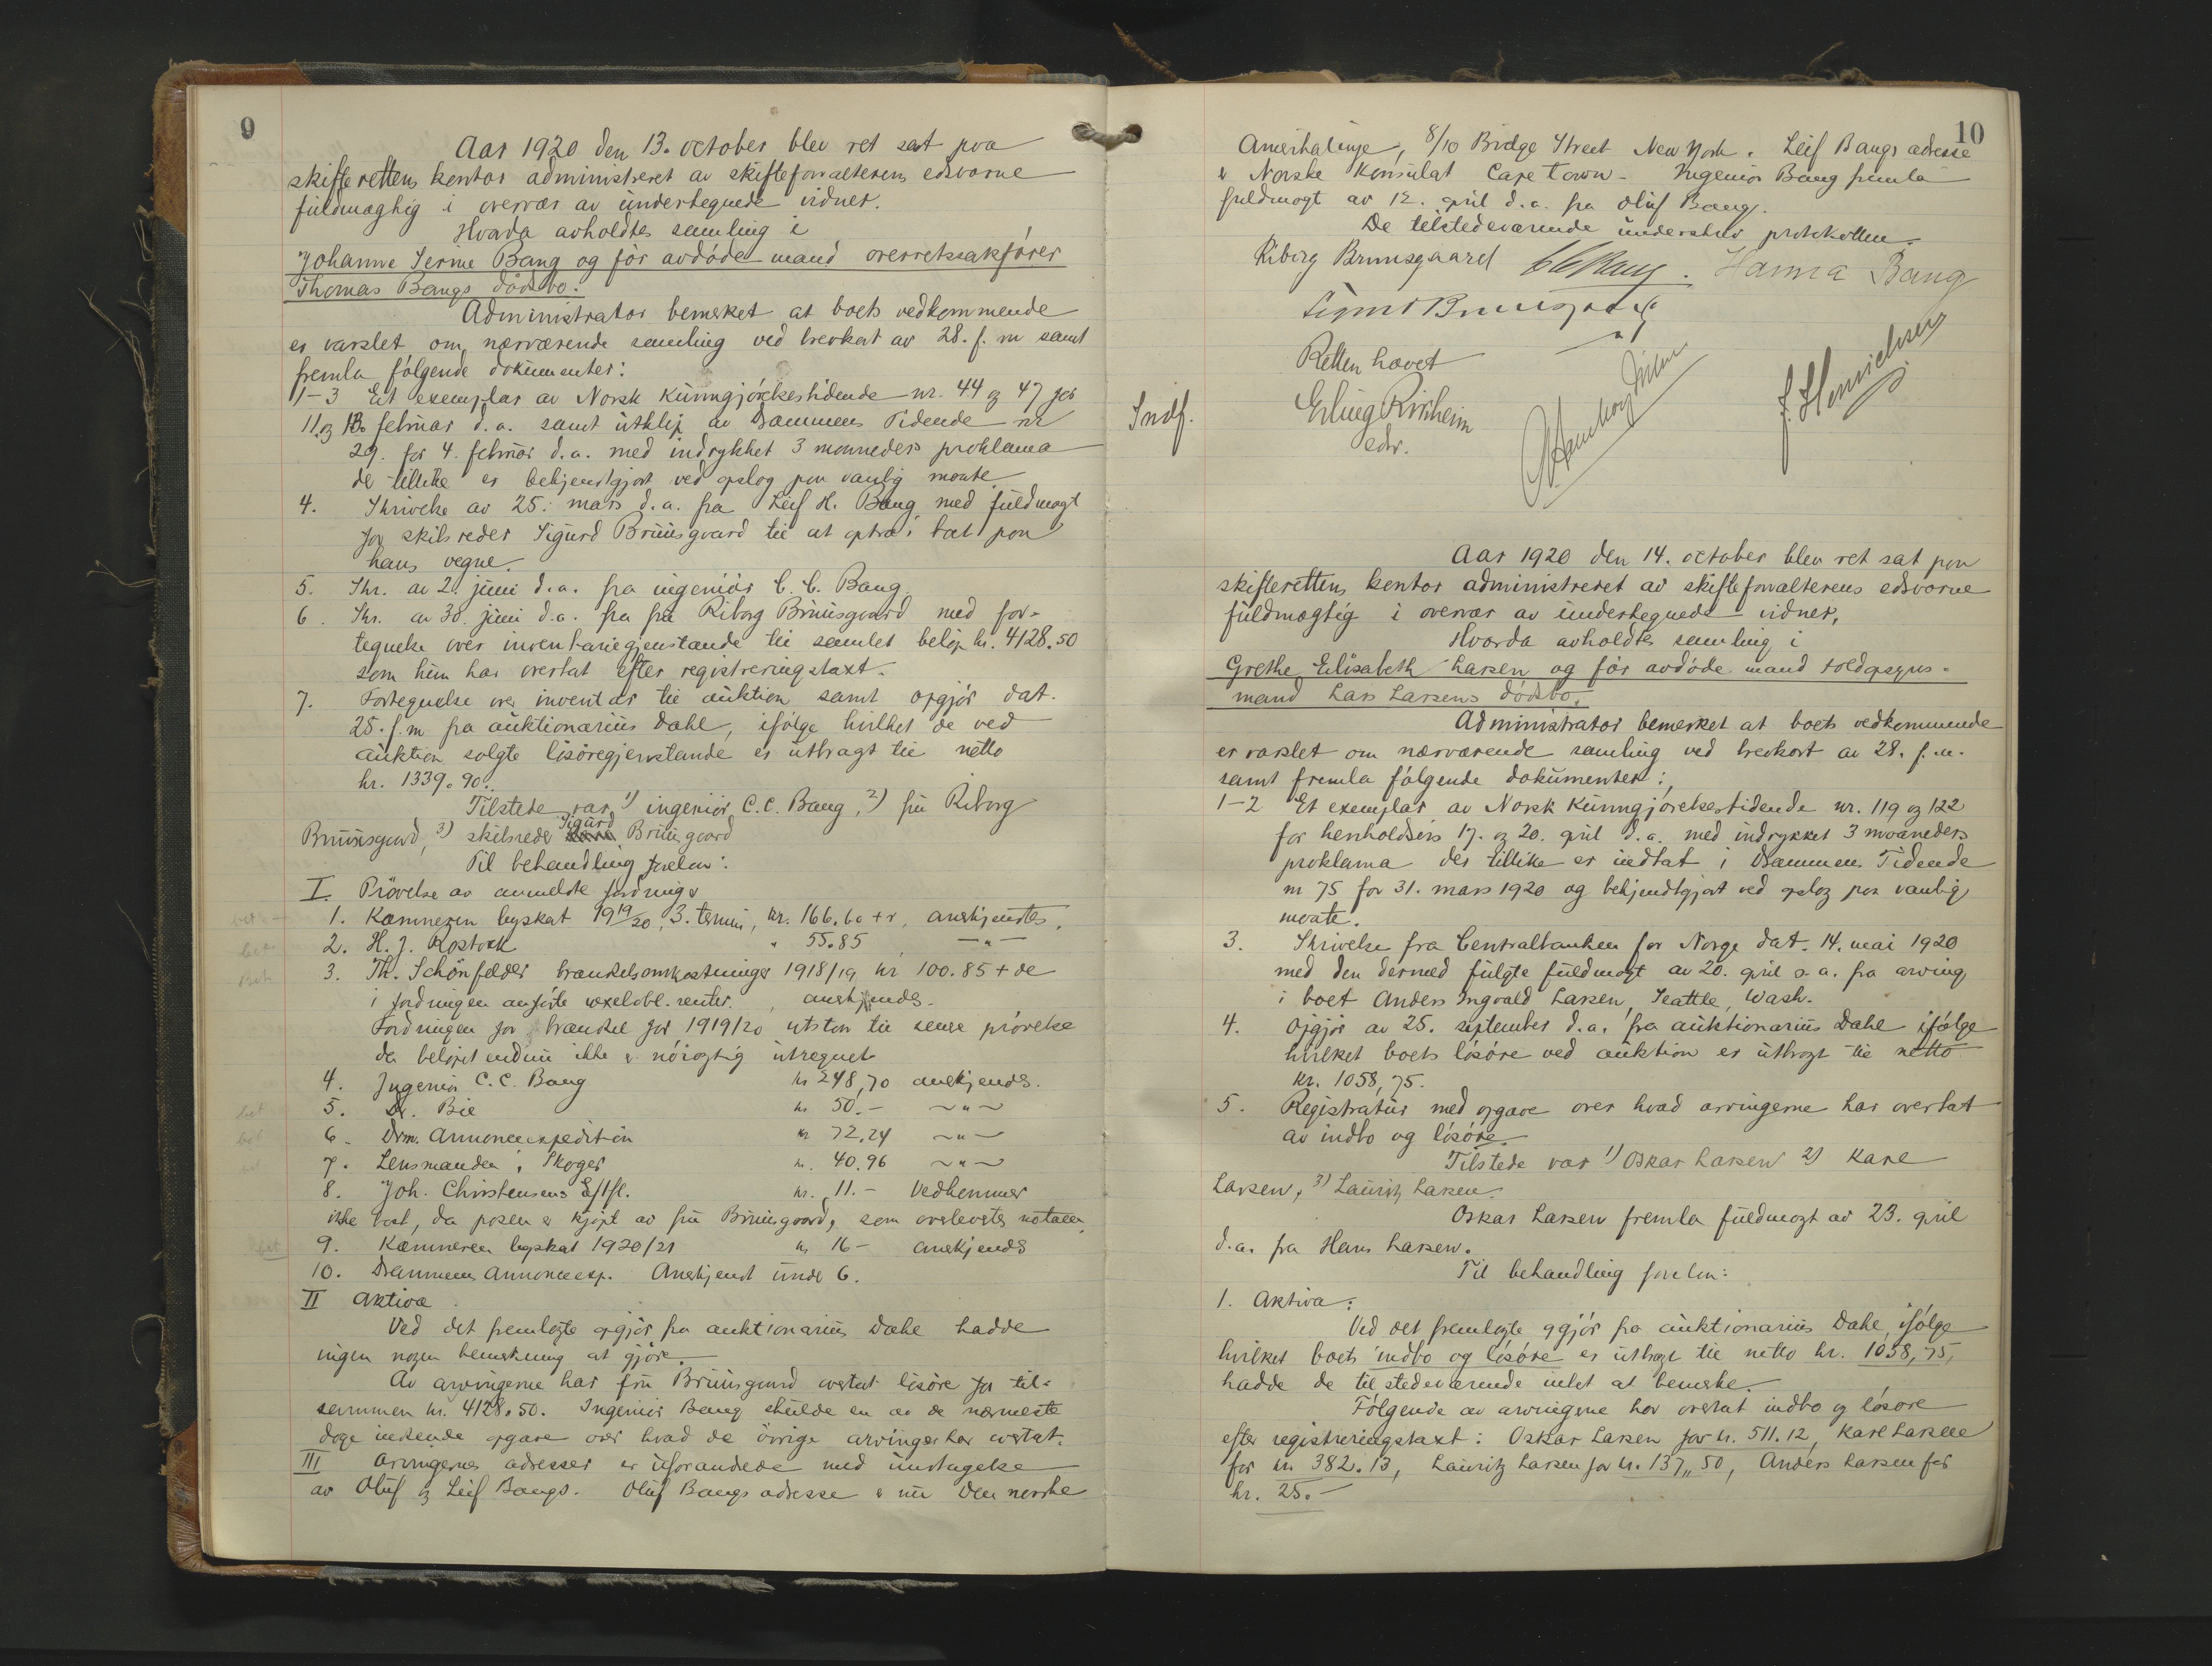 9
Aar 1920 den 13. october blev ret sat paa
skifterettens kontor administreret av skifteforvalterens edsvorne
fuldmægtig i overvær av undertegnede vidner.
Hvorda avholdtes samling i
Johanne Bang og før avdøde mand overretssakfører
Thomas Bangs dødsbo.
Administrator bemerket at boets vedkommende
er varslet om nærværende samling ved brevkort av 28. f. m samt
fremla følgende dokumenter:
1-3 Et exemplar av Norsk Kunngjørelsestidende nr. 44 og 47 for
11. og 13. februar d.a. samt utklip av Drammens Tidende nr
29. for 4. februar d.a. med indrykket 3 maaneders proklama
der tillike er bekjendtgjort ved opslag paa vanlig maate.
4. Skrivelse av 25. mars d.a. fra Leif H. Bang med fuldmagt
for skibsreder Sigurd Bruusgaard til at optræ i boet paa
hans vegne.
5. Skr. av 2. juni d.a. fra ingeniør C. C. Bang.
6. Skr. av 30. juni d.a. fra fru Riborg Bruusgaard med for-
tegnelse over inventariegjenstande til samlet beløp kr. 4128.50
som hun har overtat efter registreringstaxt.
7. Fortegnelse over inventar til auktion samt opgjør dat.
25. f. m fra auktionarius Dahl, ifølge hvilket de ved
auktion solgte løsøregjenstande er utbragt til netto
kr. 1339.90.
Tilstede var 1) ingeniør C. C. Bang, 2) fru Riborg
Bruusgaard, 3) skibsreder Sigurd Bruusgaard
Til behandling forelaa:
I. Prøvelse av anmeldte fordringer
bet 1. Kæmneren byskat 1919/20, 3. termin, kr. 166.60 + r. anerkjendtes.
bet 2. H. J. Rostock " 55.85 — " —
Bet 3. Th. Schönfelder brændselsomkostninger 1918/19 kr 100.85 + de
i fordringen anførte vexelobl. renter, anerkjendes.
Fordringen for brændsel for 1919/20 utstaar til senere prøvelse
da beløpet endnu ikke er nøiagtig utregnet
4. Ingeniør C. C. Bang kr 248,70 anerkjendes.
bet 5. Dr. Bie kr 50.— ~"~
bet 6. Drm. Annonceexpedition kr 72.24 ~"~
bet 7. Lensmanden i Skoger kr. 40.96 ~"~
8. Joh. Christensens Eftfl. kr. 11.— Vedkommer
ikke boet, da posten er kjøpt av fru Bruusgaard, som overlevertes notaen.
bet 9. Kæmneren byskat 1920/21 kr 16— anerkjendes
10. Drammens Annonceexp. Anerkjendt under 6.
II Aktiva
Ved det fremlagte opgjør fra auktionarius Dahl hadde
ingen nogen bemerkning at gjøre.
Av arvingerne har fru Bruusgaard overtat løsøre for til-
sammen kr. 4128.50. Ingeniør Bang skulde en av de nærmeste
dage indsende opgave over hvad de øvrige arvinger har overtat.
III Arvingernes adresser er uforandrede med undtagelse
av Oluf og Leif Bangs. Oluf Bangs adresse er nu Den norske
10
Amerikalinje, 8/10 Bridge Street New York. Leif Bangs adresse
er Norske Konsulat Cape Town. Ingeniør Bang fremla
fuldmagt av 12. april d.a. fra Oluf Bang.
De tilstedeværende underskrev protokollen.
Riborg Bruusgaard CC Bang. Hanna Bang
Sigurd Bruusgaard
Retten hævet
Indf. Erling Kirkheim J. Henrichsen
edsv.
Aar 1920 den 14. october blev ret sat paa
skifterettens kontor administreret av skifteforvalterens edsvorne
fuldmægtig i overvær av undertegnede vidner.
Hvorda avholdtes samling i
Grethe Elisabeth Larsen og før avdøde mand toldopsyns-
mand Lars Larsens dødsbo.
Administrator bemerket at boets vedkommende
er varslet om nærværende samling ved brevkort av 28. f. m.
samt fremla følgende dokumenter:
1-2 Et exemplar av Norsk Kunngjørelsestidende nr. 119 og 122
for henholdsvis 17. og 20. april d.a. med indrykket 3 maaneders
proklama der tillike er indtat i Drammens Tidende
nr 75 for 31. mars 1920 og bekjendtgjort ved opslag paa vanlig
maate.
3. Skrivelse fra Centralbanken for Norge dat. 14. mai 1920
med den dermed fulgte fuldmagt av 20. april s. a. fra arving
i boet Anders Ingvald Larsen, Seattle, Wash.
4. Opgjør av 25. september d.a. fra auktionarius Dahl ifølge
hvilket boets løsøre ved auktion er utbragt til netto
kr. 1058,75.
5. Registratur med opgave over hvad arvingerne har overtat
av indbo og løsøre.
Tilstede var 1) Oskar Larsen 2) Kare
Larsen, 3) Lauritz Larsen.
Oskar Larsen fremla fuldmagt av 23. april
d.a. fra Hans Larsen.
Til behandling forelaa:
1. Aktiva:
Ved det fremlagte opgjør fra auktionarius Dahl, ifølge
hvilket boets indbo og løsøre er utbragt til netto kr. 1058,75,
hadde de tilstedeværende intet at bemerke.
Følgende av arvingerne har overtat indbo og løsøre
efter registreringstaxt: Oskar Larsen for kr. 511.12, Kare Larsen
for kr. 382.13, Lauritz Larsen for kr. 137,50, Anders Larsen for
kr. 25.—